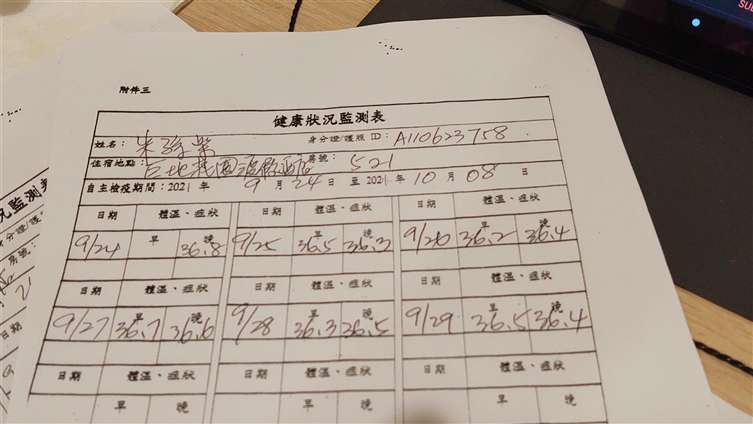 附件三
健康狀況監測表
姓名： 朱 榮 身分證/護照 ID： A110623758
住宿地點： 桃園 酒店 房號： 521
自主檢疫期間：2021 年 9 月 24 日 至 2021 年 10 月 08 日
日期 體溫、症狀 日期 體溫、症狀 日期 體溫、症狀
9/24 早 晚 36.8 9/25 早 36.5 晚 36.2 9/26 早 36.2 晚 36.4
日期 體溫、症狀 日期 體溫、症狀 日期 體溫、症狀
9/27 早 36.7 晚 36.6 9/28 早 36.3 晚 36.5 9/29 早 36.5 晚 36.4
日期 體溫、症狀 日期 體溫、症狀 日期 體溫、症狀
早 晚 早 晚 早 晚